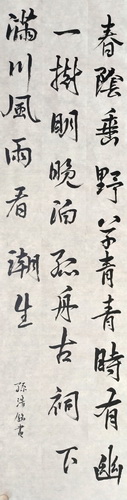 春陰垂野草青青時有幽
一樹明晚泊孤舟古祠下
滿川風雨看潮生